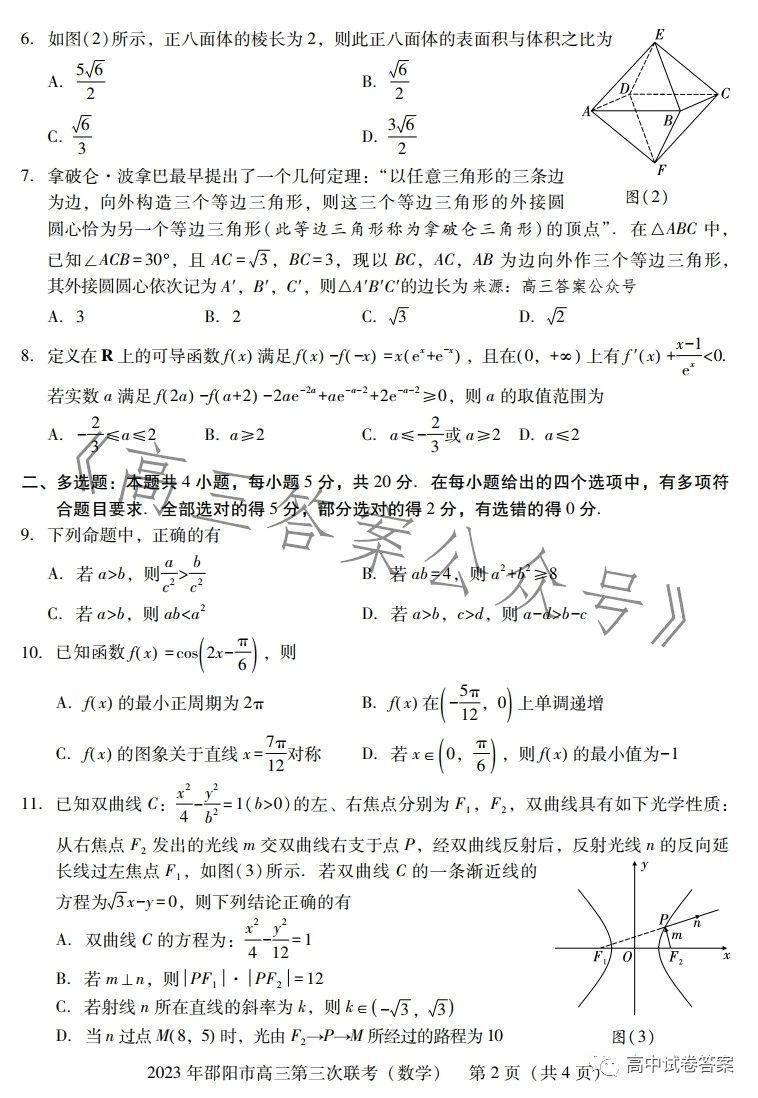 6. 如图(2)所示，正八面体的棱长为2，则此正八面体的表面积与体积之比为
A. 5√6/2 B. √6/2
C. √6/3 D. 3√6/2
E
D
C
A
B
F
图(2)
7. 拿破仑·波拿巴最早提出了一个几何定理：“以任意三角形的三条边
为边，向外构造三个等边三角形，则这三个等边三角形的外接圆
圆心恰为另一个等边三角形(此等边三角形称为拿破仑三角形)的顶点”．在△ABC中，
已知∠ACB=30°，且AC=√3，BC=3，现以BC，AC，AB为边向外作三个等边三角形，
其外接圆圆心依次记为A′，B′，C′，则△A′B′C′的边长为 来源：高三答案公众号
A. 3 B. 2 C. √3 D. √2
8. 定义在R上的可导函数f(x)满足f(x)-f(-x)=x(eˣ+e⁻ˣ)，且在(0，+∞)上有f′(x)+(x-1)/eˣ<0.
若实数a满足f(2a)-f(a+2)-2ae^(-2a)+ae^(-a-2)+2e^(-a-2)≥0，则a的取值范围为
A. -2/3≤a≤2 B. a≥2 C. a≤-2/3或a≥2 D. a≤2
二、多选题：本题共4小题，每小题5分，共20分．在每小题给出的四个选项中，有多项符
合题目要求．全部选对的得5分，部分选对的得2分，有选错的得0分．
9. 下列命题中，正确的有
A. 若a>b，则a/c²>b/c² B. 若ab=4，则a²+b²≥8
C. 若a>b，则ab<a² D. 若a>b，c>d，则a-d>b-c
10. 已知函数f(x)=cos(2x-π/6)，则
A. f(x)的最小正周期为2π B. f(x)在(-5π/12，0)上单调递增
C. f(x)的图象关于直线x=7π/12对称 D. 若x∈(0，π/6)，则f(x)的最小值为-1
11. 已知双曲线C：x²/4-y²/b²=1(b>0)的左、右焦点分别为F₁，F₂，双曲线具有如下光学性质：
从右焦点F₂发出的光线m交双曲线右支于点P，经双曲线反射后，反射光线n的反向延
长线过左焦点F₁，如图(3)所示．若双曲线C的一条渐近线的
方程为√3x-y=0，则下列结论正确的有
A. 双曲线C的方程为：x²/4-y²/12=1
B. 若m⊥n，则|PF₁|·|PF₂|=12
C. 若射线n所在直线的斜率为k，则k∈(-√3，√3)
D. 当n过点M(8，5)时，光由F₂→P→M所经过的路程为10
y
P
n
m
F₁ O F₂ x
图(3)
《高三答案公众号》
高中试卷答案
2023年邵阳市高三第三次联考（数学） 第2页（共4页）